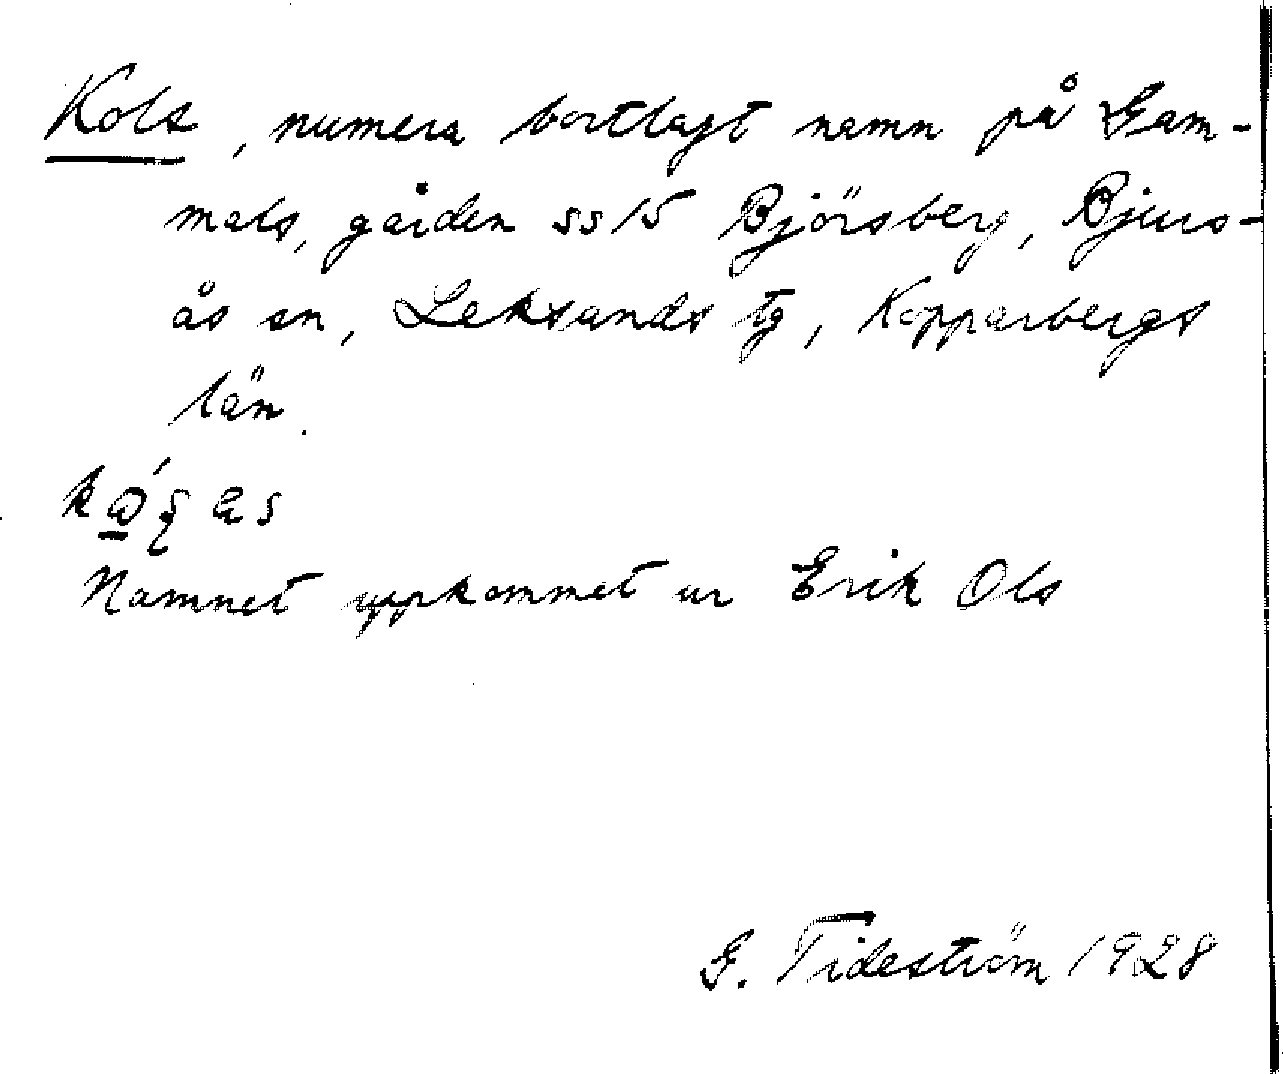 Kols, numera bortlagt namn på Gam-
mals, gården ss 15 Björsberg, Bjurs-
ås sn, Leksands tg, Kopparbergs
län.
Namnet uppkommet ur Erik Ols
G. Tideström 1928